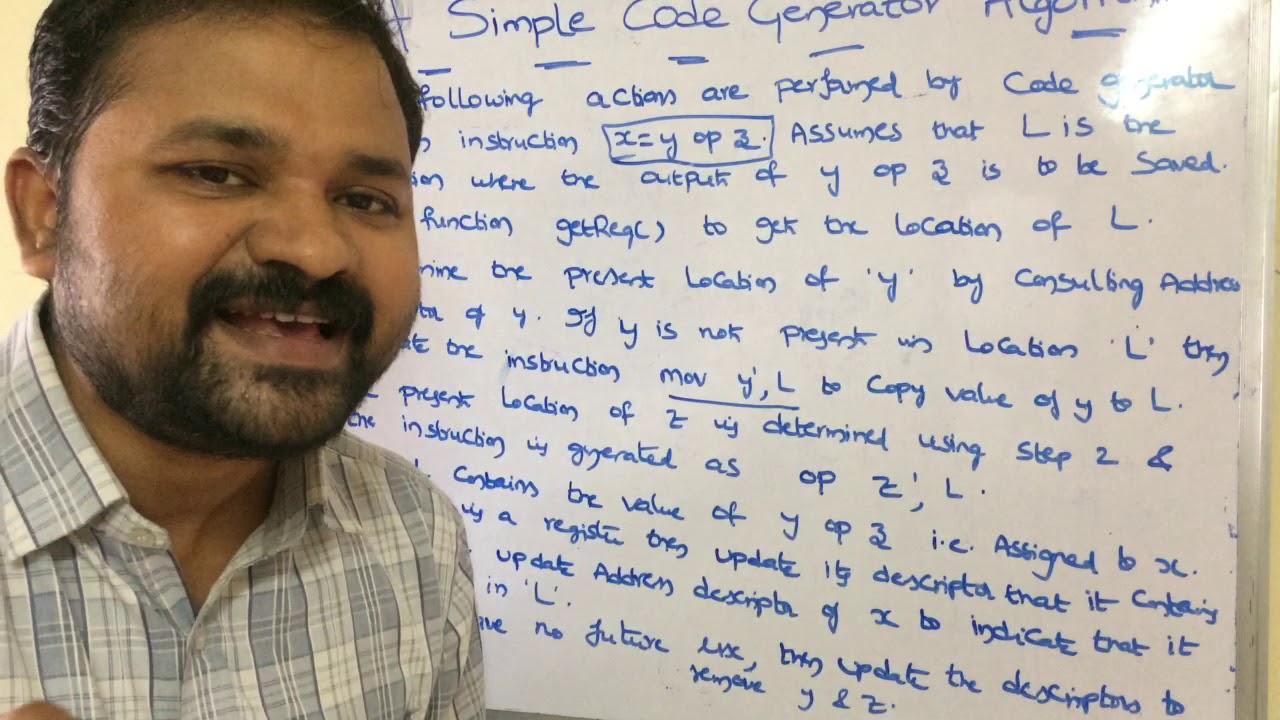 A Simple Code Generator Algorithm
following actions are performed by Code generator
instruction x = y op z. Assumes that L is the
where the output of y op z is to be saved.
function getReg() to get the location of L.
the present location of 'y' by Consulting Address
of y. If y is not present in location 'L' then
the instruction mov y', L to Copy value of y to L.
present location of z is determined using step 2 &
the instruction is generated as op z', L.
Contains the value of y op z i.e. Assigned to x.
is a register then update its descriptor that it contains
update Address descriptor of x to indicate that it
in 'L'.
no future use, then update the descriptors to
remove y & z.